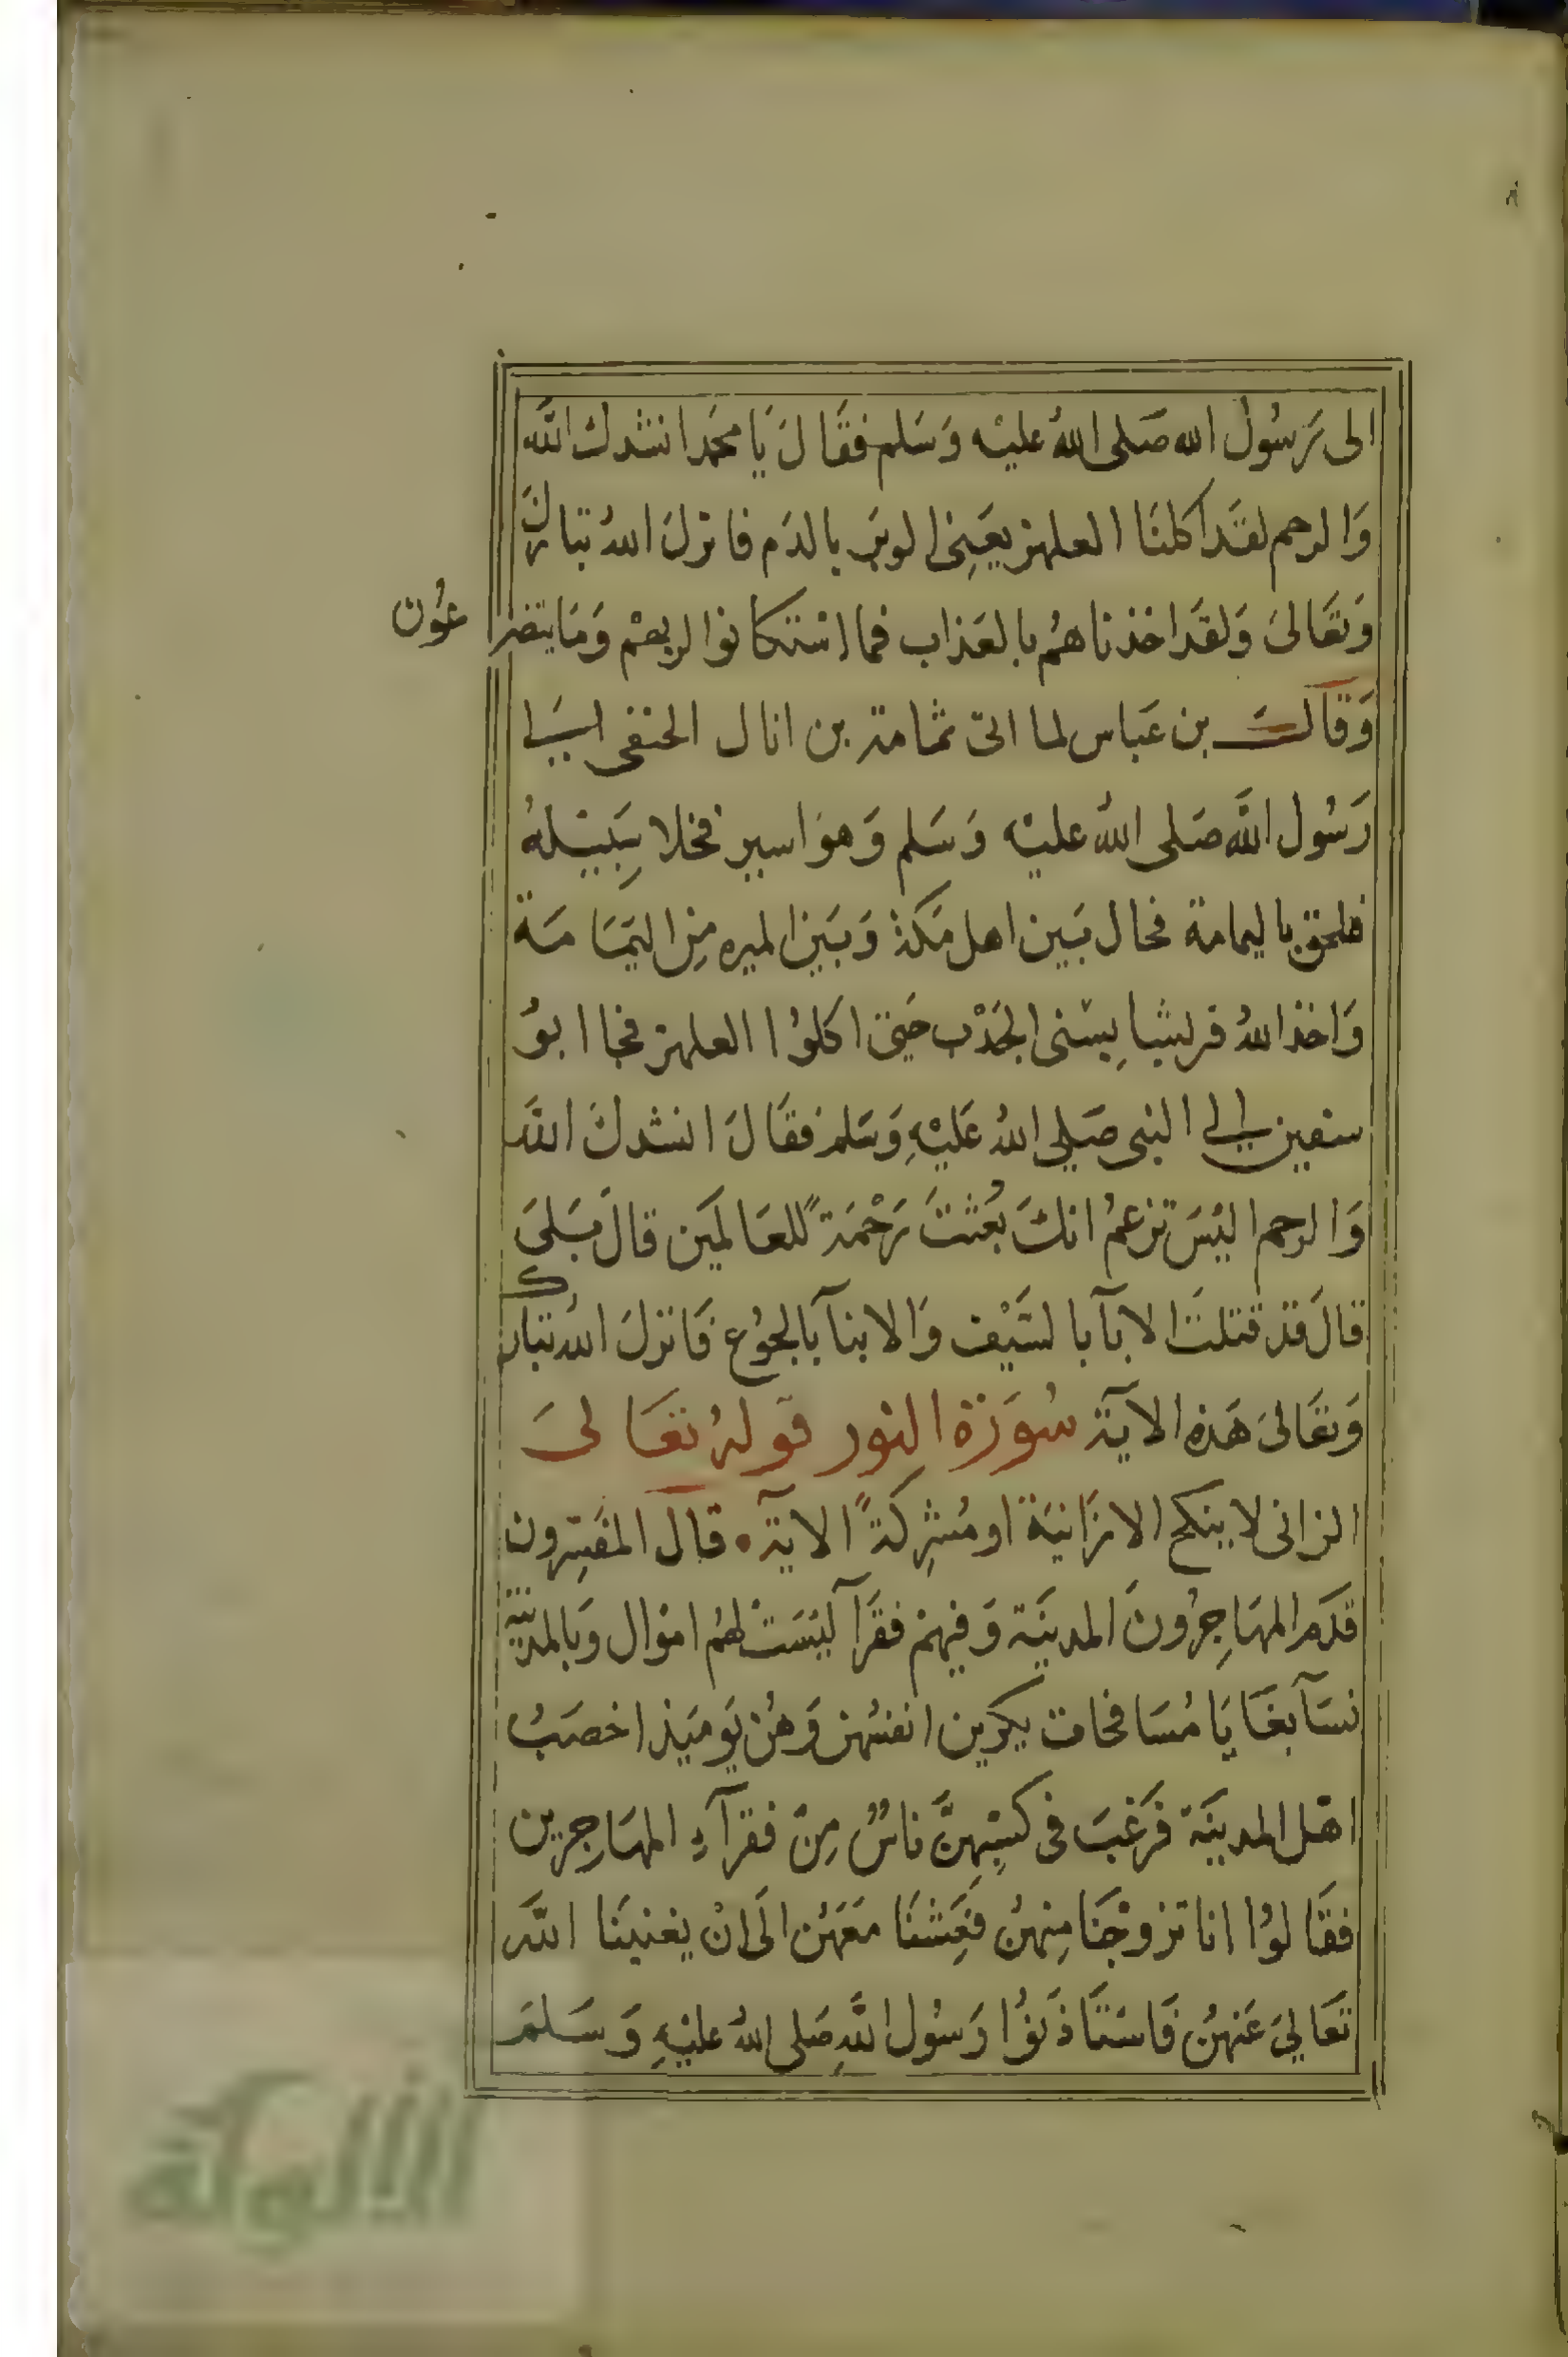 الى رَسُول الله صَلى اللهُ عليْه وَسَلم فقَالَ يَا محمَد انشدك اللهَ
وَالرحم لقَد اكلنَا العلهز يعَنِى الوبَر بالدَم فانزلَ اللهُ تباركَ
وَتعَالىَ وَلقدَ اخذناهُم بالعَذاب فما استكانوا لربهمْ وَمَا يتضرعُون
وَقالَ بن عَباس لما اتى ثمامة بن اثال الحنفى اسيَرا
رَسُول اللهَ صَلى اللهُ عليْه وَسَلم وَهوَ اسير فخلا سَبيْلهُ
فلحق باليمامة فحال بَين اهل مَكة وَبَين الميره مِن اليمَامَة
وَاخذ اللهُ قريشا بِسنى الجَدْب حَتى اكلوُا العلهز فجا ابوُ
سفين الى النبى صَلى اللهُ عَليْهِ وَسَلم فقَالَ انشدكَ اللهَ
وَالرحم اليْسَ تزعمُ انكَ بُعثتَ رَحْمَةً للعَالمَين قالَ بَلىَ
قالَ قدْ قتلتَ الابآ بالسَيْف وَالابنآ بالجوُع فَانزلَ اللهُ تبارك
وَتعَالىَ هَذه الآية سُورَة النور قولهُ تعَالىَ
الزانى لا ينكح الا زَانيَة او مُشِركَةً الاية قال المفَسِرون
قدَم المهَاجِرُونَ المدينَة وَفيهمْ فقرَآ ليَسَتْ لهُم امْوال وَبالمدينَة
نسَآ بغَايَا مُسَافحات يكرين انفسُهن وَهُن يَوميَذ اخصَبُ
اهْل المدينَة فَرَغبَ فى كسْبِهِنَّ ناسٌ مِنْ فقرآءِ المهَاجِرين
فقَالوُا انا تزوجْنَا مِنهنُ فَعِشنَا مَعَهُن الَى انْ يغنينَا اللهَ
تعَالىَ عَنهنُ فَاستَاذَنوُا رَسُول اللهِ صَلى اللهُ عليْهِ وَسَلمَ
الألوكة